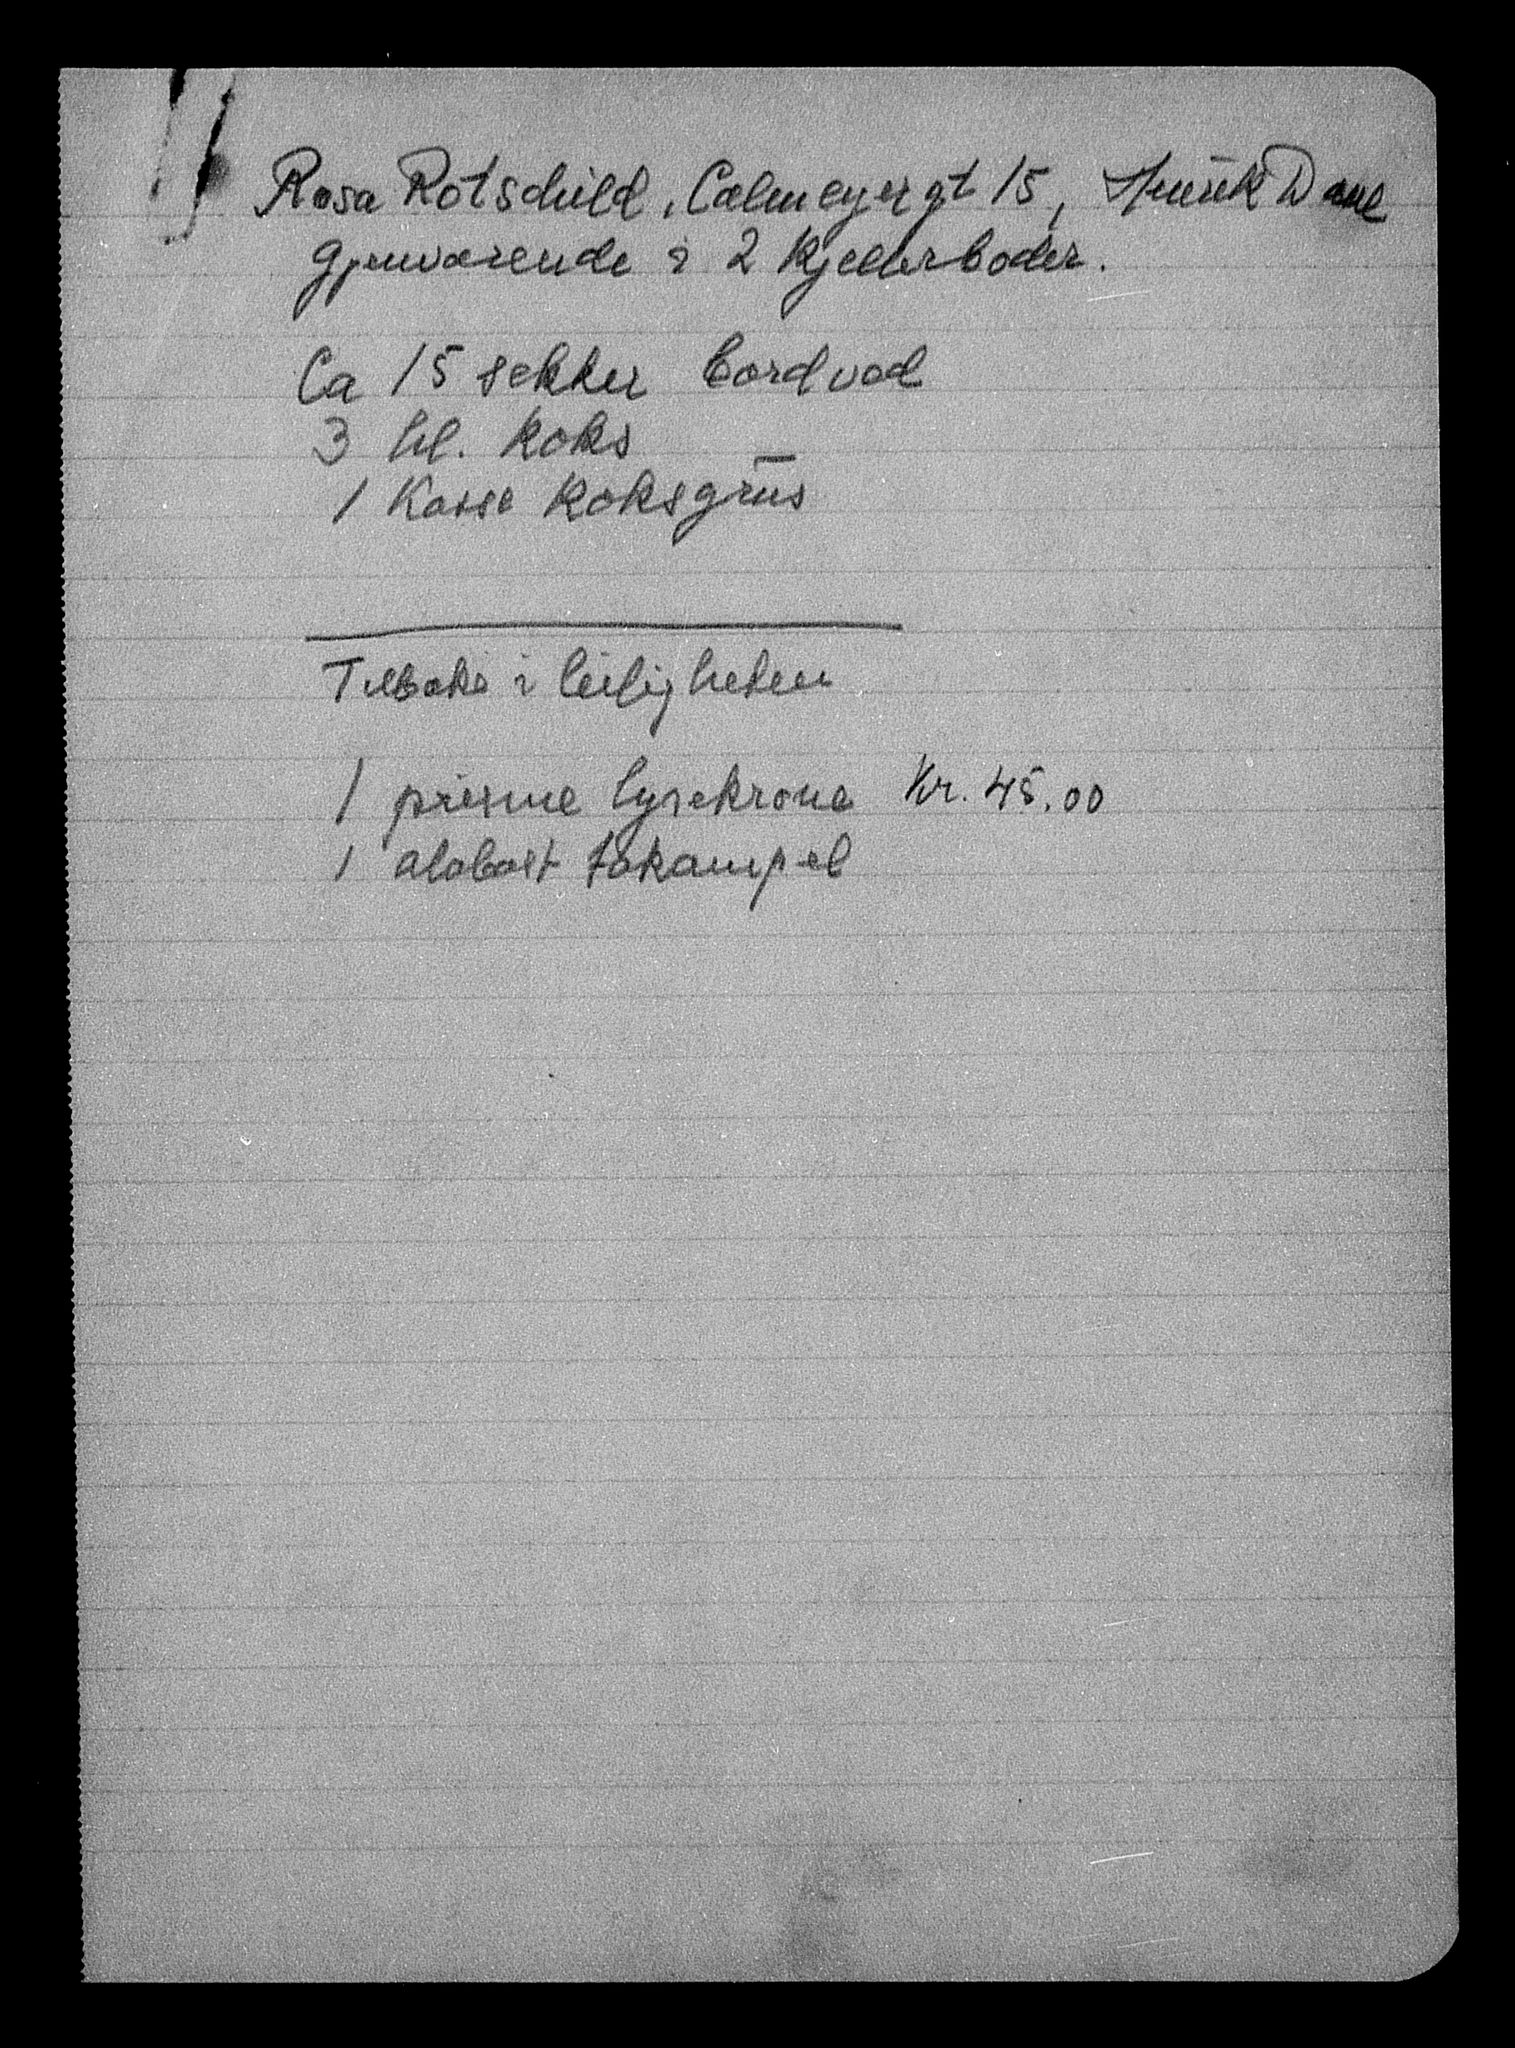 Rosa Rotschild, Calmeyergt 15, Henrik Dahl
gjenværende i 2 kjellerboder.
Ca 15 sekker bordved
3 hl. koks
1 Kasse koksgrus
Tilbake i leiligheten
1 prisme lysekrone Kr. 45.00
1 alabast takampel